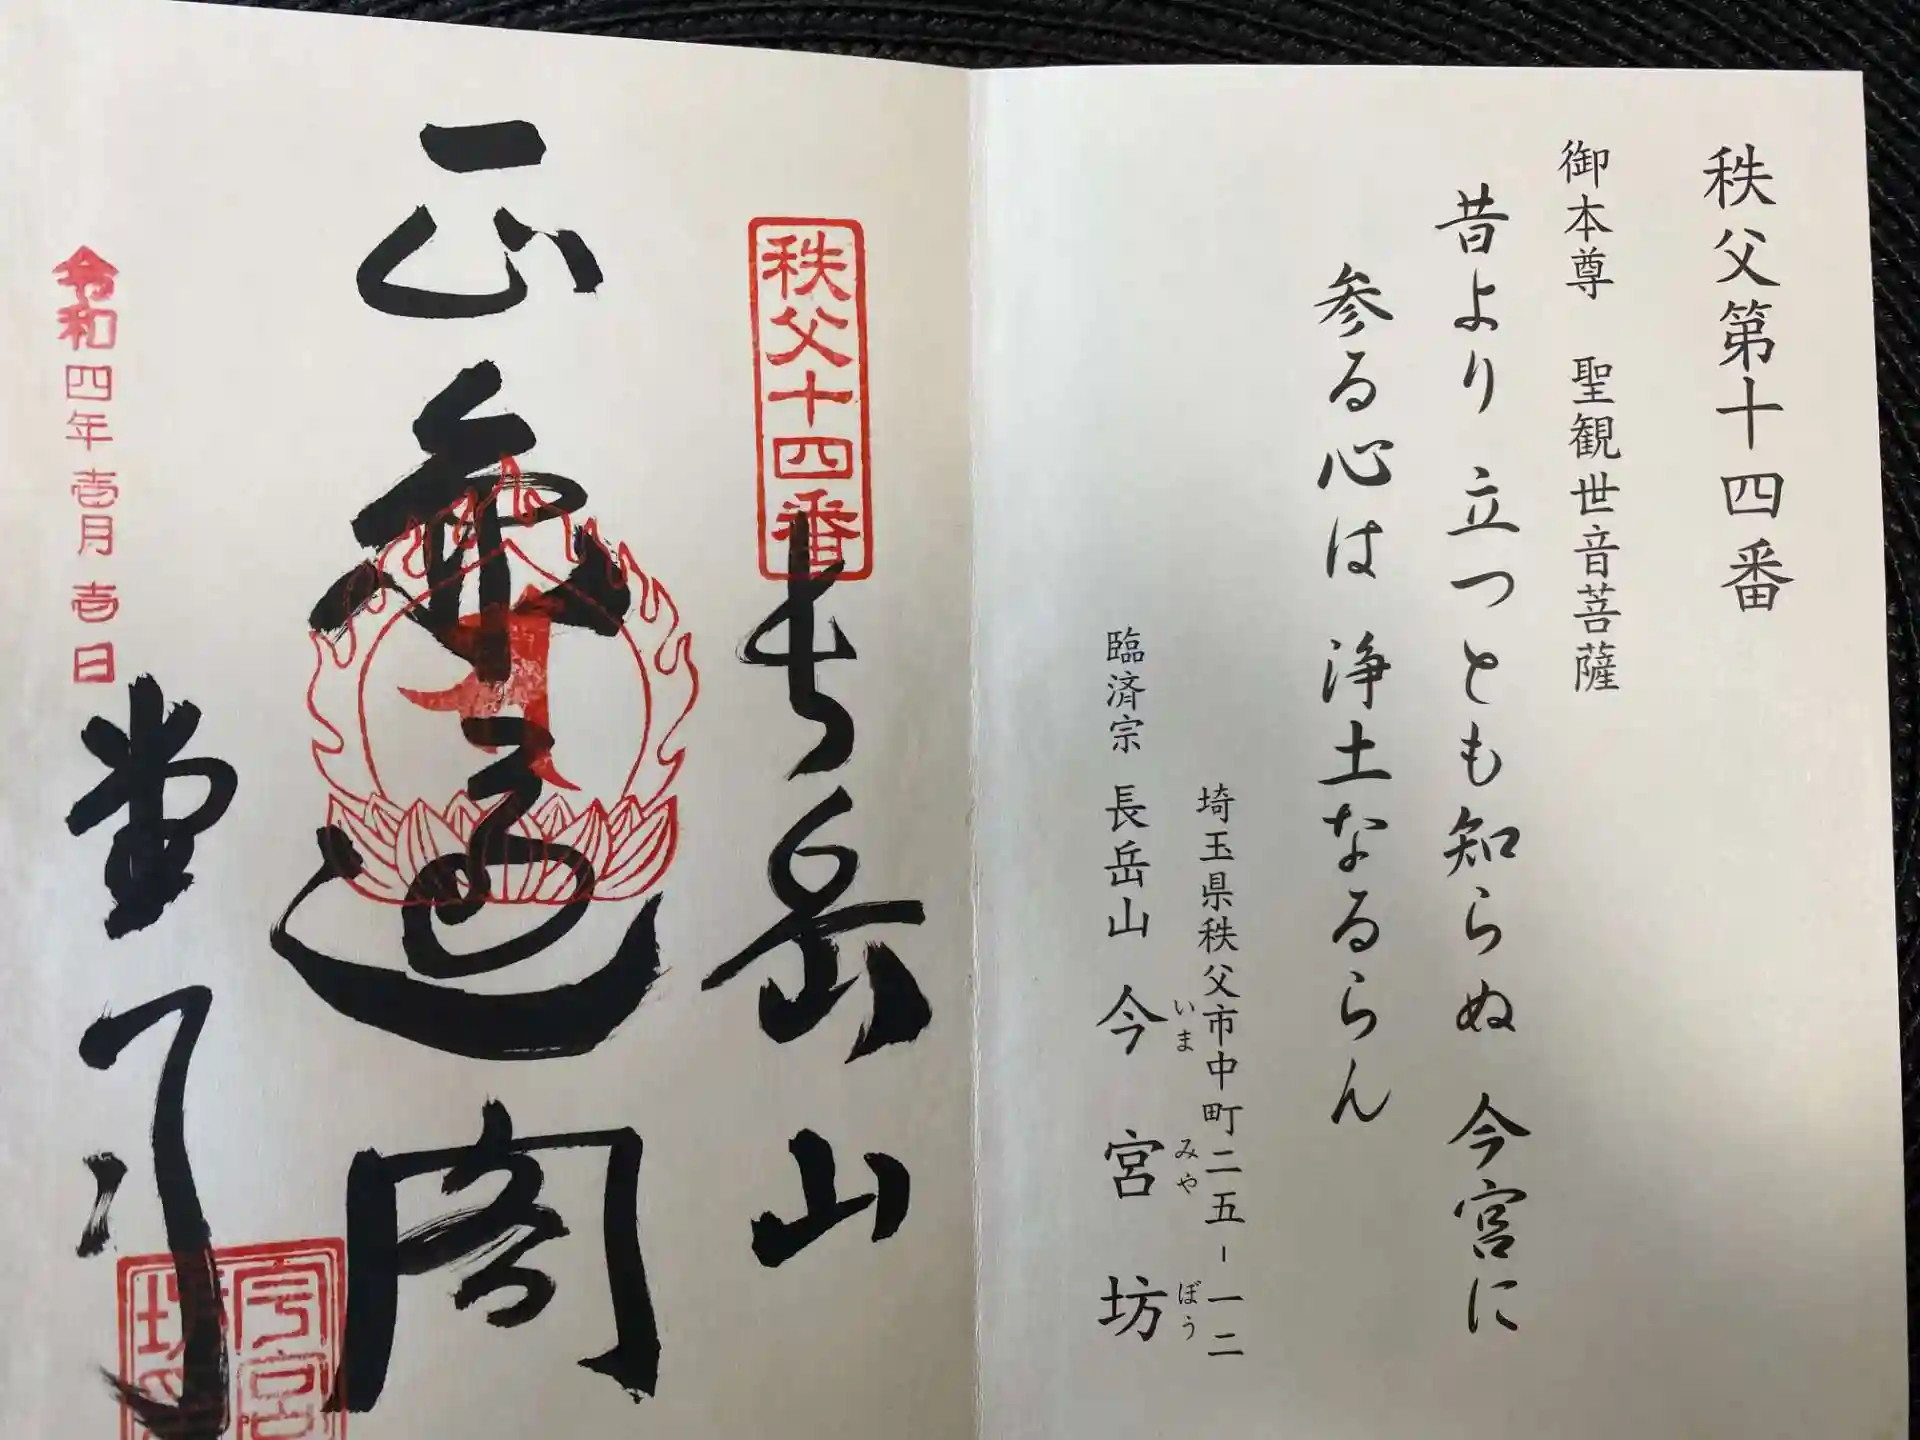 秩父第十四番
御本尊 聖観世音菩薩
昔より 立つとも知らぬ 今宮に
参る心は 浄土なるらん
埼玉県秩父市中町二五-一二
臨済宗 長岳山 今宮坊
いま みや ぼう
秩父十四番
長岳山
正無辺閣
堂
令和四年壱月壱日
今宮
坊